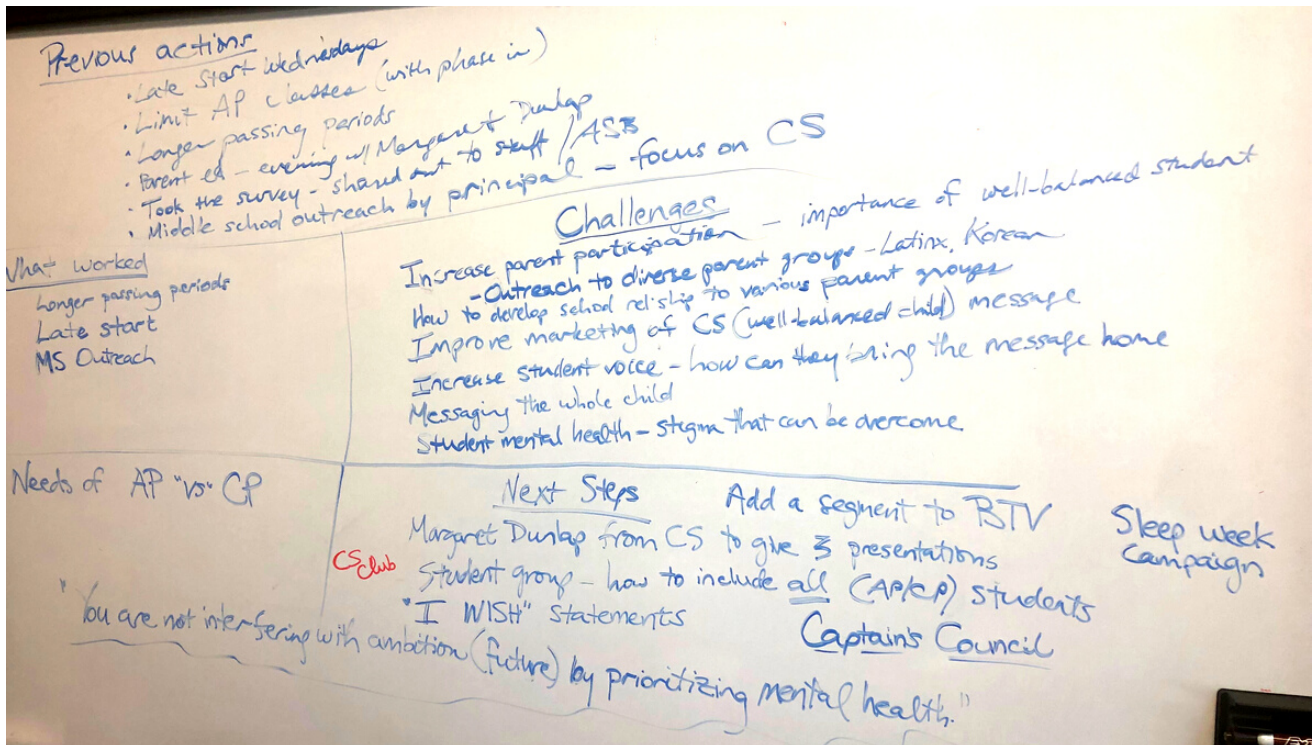 Previous actions
• Late Start Wednesdays
• Limit AP classes (with phase in)
• Longer passing periods
• Parent ed - evening w/ Margaret Dunlap
• Took the survey - shared out to staff / ASB
• Middle school outreach by principal - focus on CS
What worked
Longer passing periods
Late start
MS Outreach
Challenges
Increase parent participation - importance of well-balanced student
- Outreach to diverse parent groups - Latinx, Korean
How to develop school rel'ship to various parent groups
Improve marketing of CS (well-balanced child) message
Increase student voice - how can they bring the message home
Messaging the whole child
Student mental health - stigma that can be overcome
Needs of AP "vs" CP
Next Steps
Add a segment to BTV
Sleep week
campaign
Margaret Dunlap from CS to give 3 presentations
CS Club
Student group - how to include all (AP/CP) students
"I WISH" statements
Captain's Council
"You are not interfering with ambition (future) by prioritizing mental health."